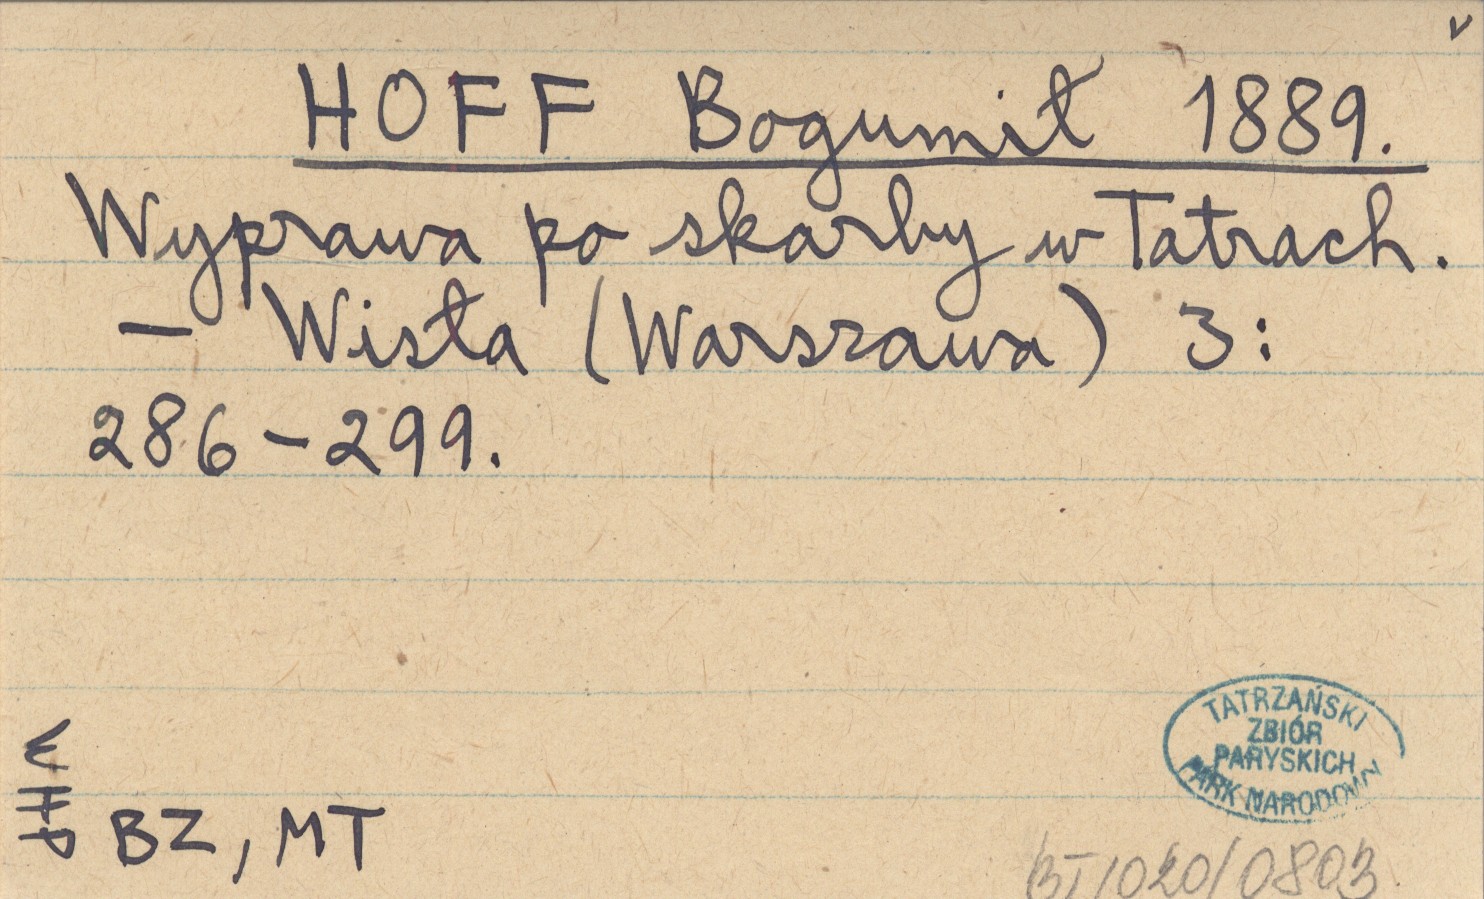 v
HOFF Bogumił 1889.
Wyprawa po skarby w Tatrach.
— Wisła (Warszawa) 3:
286-299.
BZ, MT
TATRZAŃSKI
ZBIÓR
PARYSKICH
PARK NARODOWY
BT/020/0803